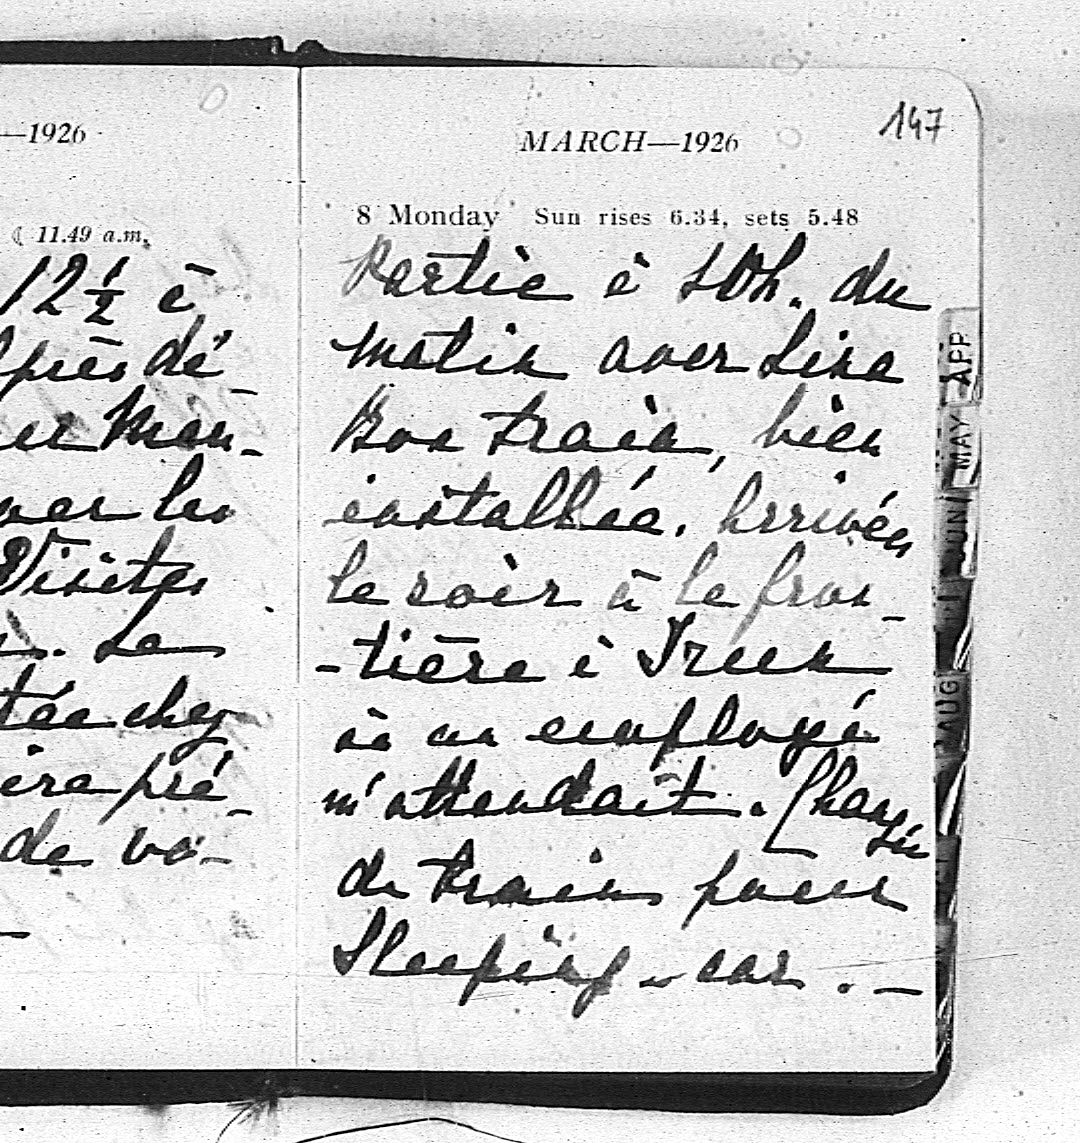 —1926
☾ 11.49 a.m.
12½ à
après dé-
er Man-
ver les
Visites
. La
tée chez
ira pré-
de vo-
147
MARCH—1926
8 Monday Sun rises 6.34, sets 5.48
Partie à 10h. du
matin avec Lisa
Bon train, bien
installée. Arrivée
le soir à la fron-
-tière à Irun
où un employé
m'attendait. Changé
de train pour
Sleeping-car. —
APR
MAY
JUN
AUG